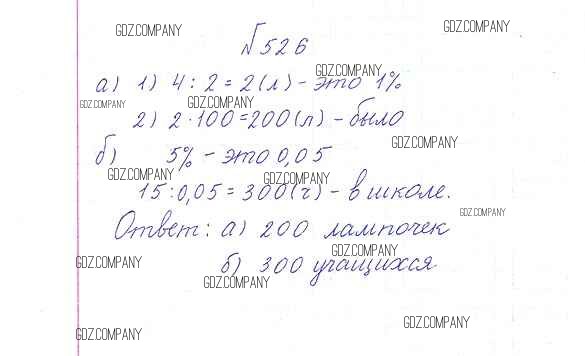 GDZ.COMPANY
GDZ.COMPANY
№526
GDZ.COMPANY
а) 1) 4 : 2 = 2 (л) - это 1%
GDZ.COMPANY
GDZ.COMPANY
2) 2 · 100 = 200 (л) - было
GDZ.COMPANY
б) 5% - это 0,05
GDZ.COMPANY
GDZ.COMPANY
15 : 0,05 = 300 (ч) - в школе.
GDZ.COMPANY
Ответ: а) 200 лампочек
GDZ.COMPANY
GDZ.COMPANY
GDZ.COMPANY
б) 300 учащихся
GDZ.COMPANY
GDZ.COMPANY
GDZ.COMPANY